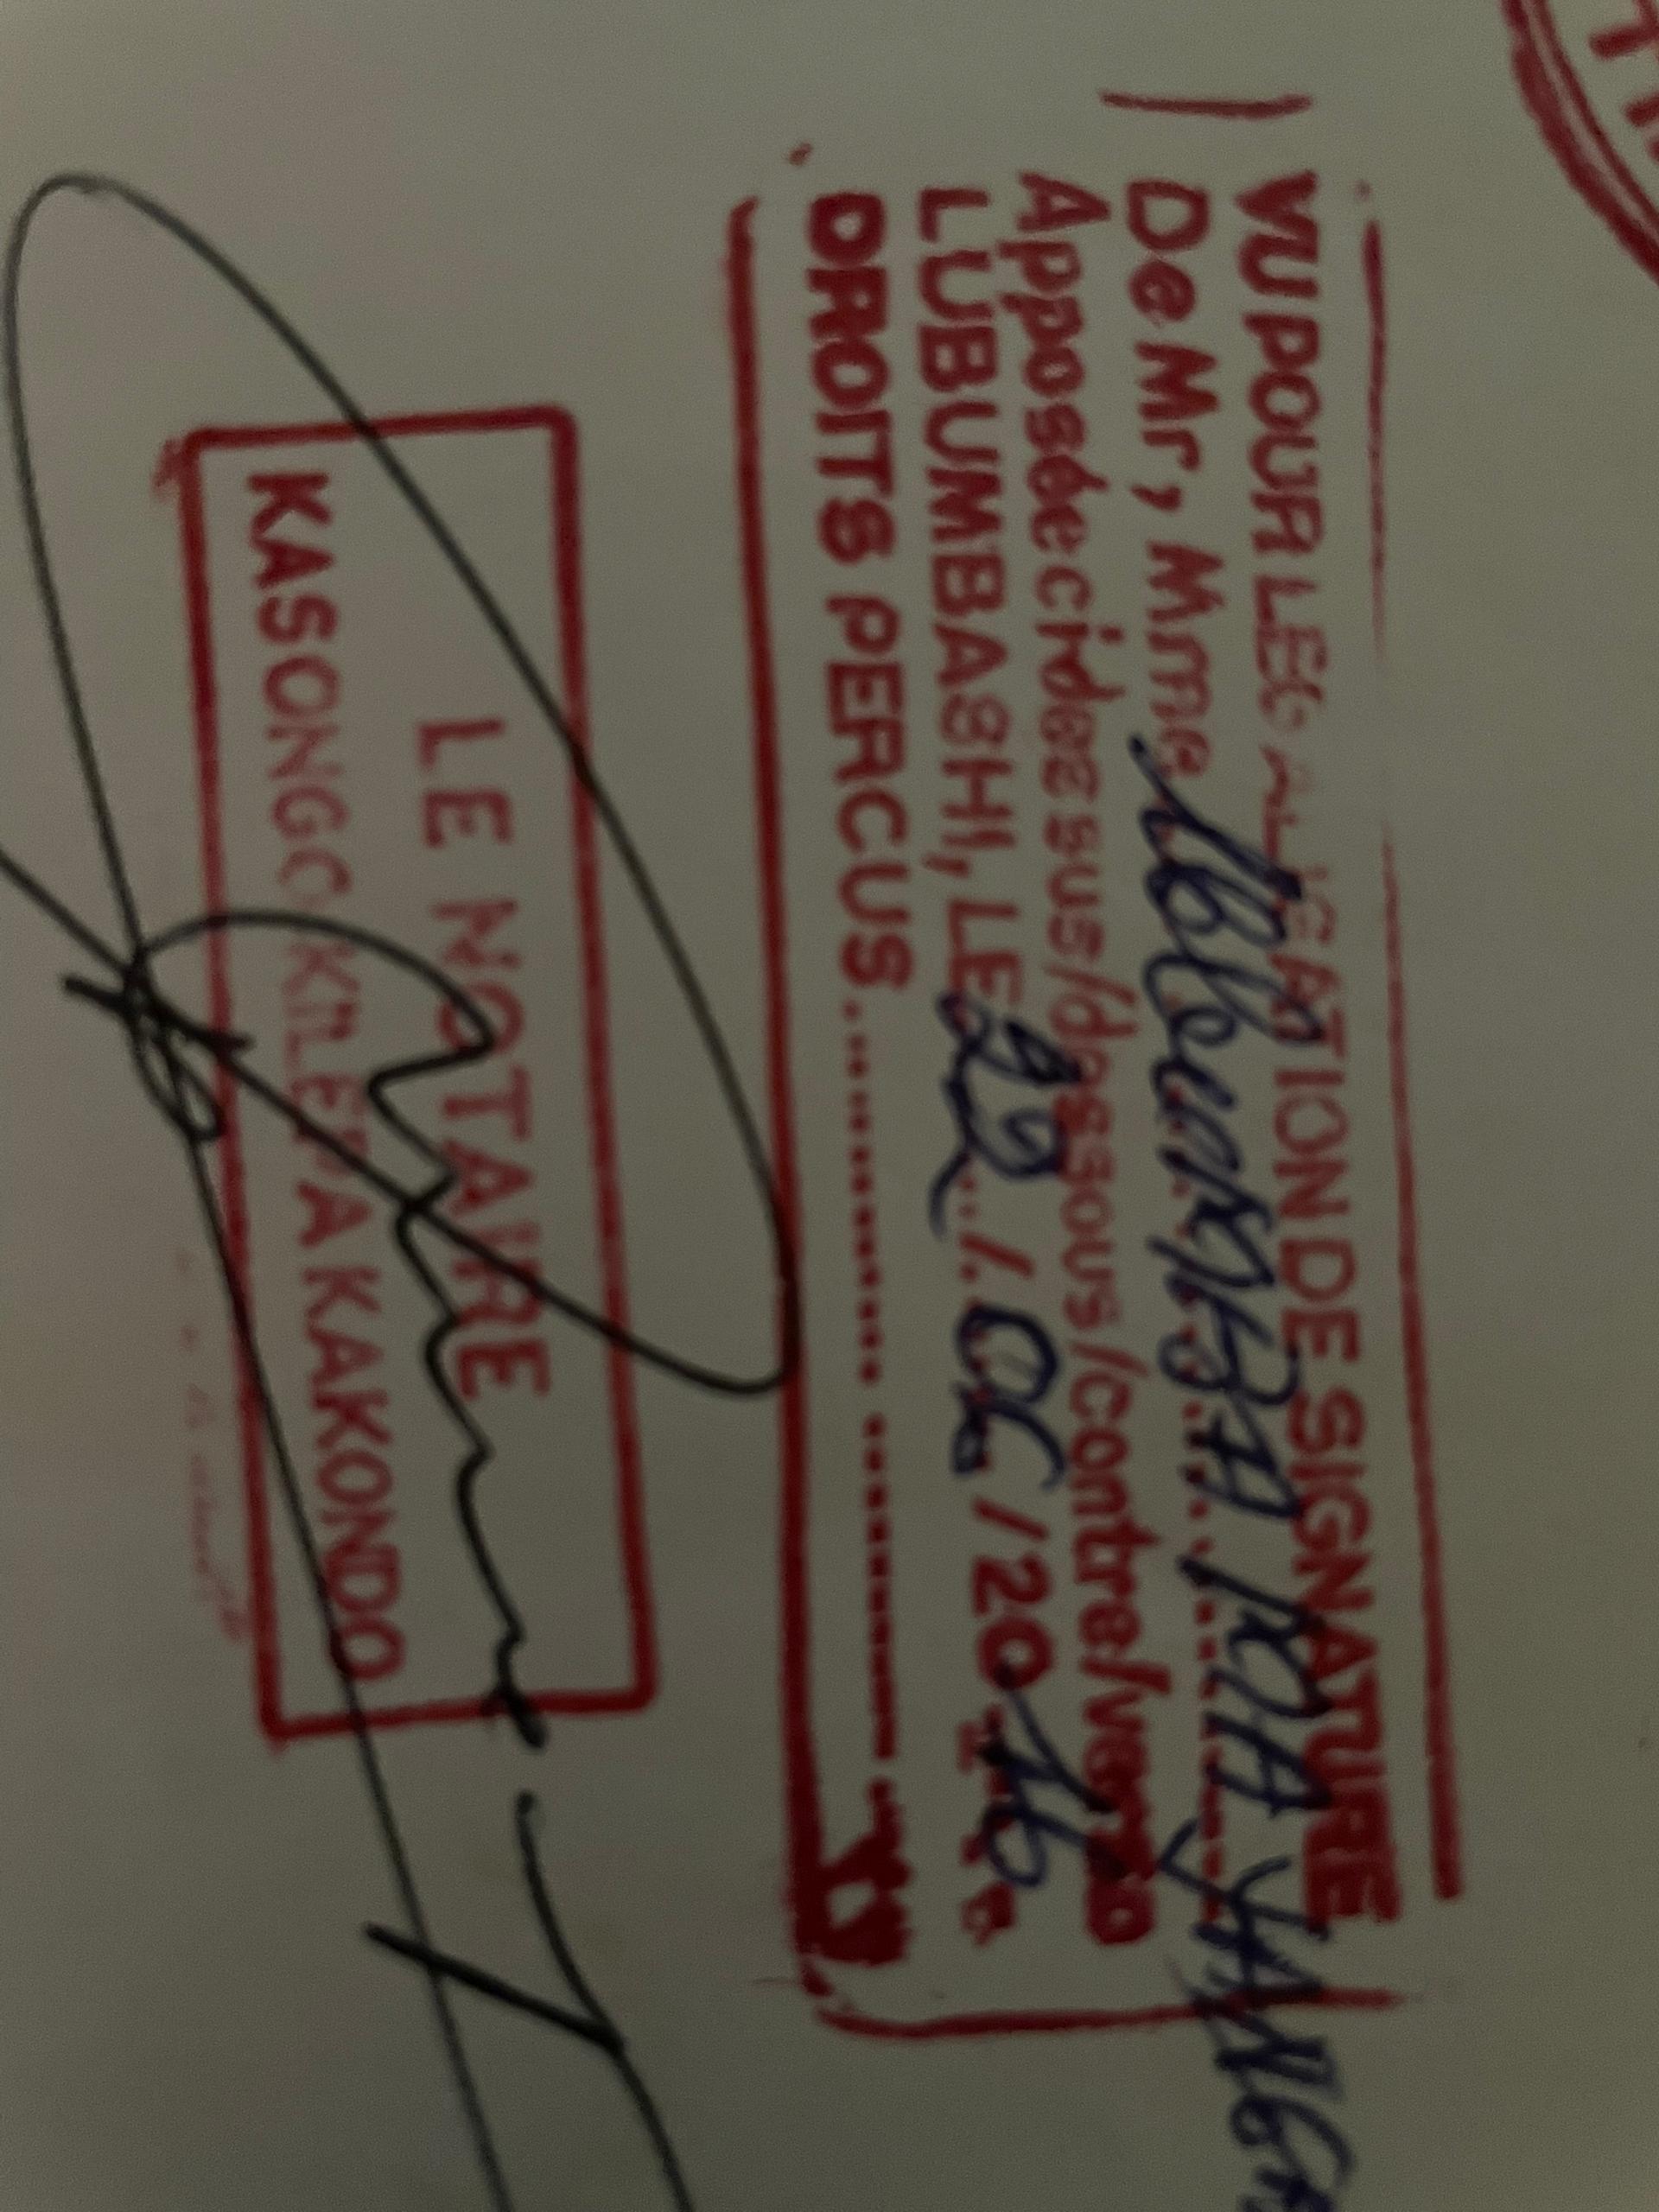 VU POUR LEGALISATION DE SIGNATURE
De Mr, Mme
Apposée ci dessus/dessous/contre/verso
LUBUMBASHI, LE 22 / 06 / 2016
DROITS PERCUS
LE NOTAIRE
KASONGO KILEPA KAKONDO